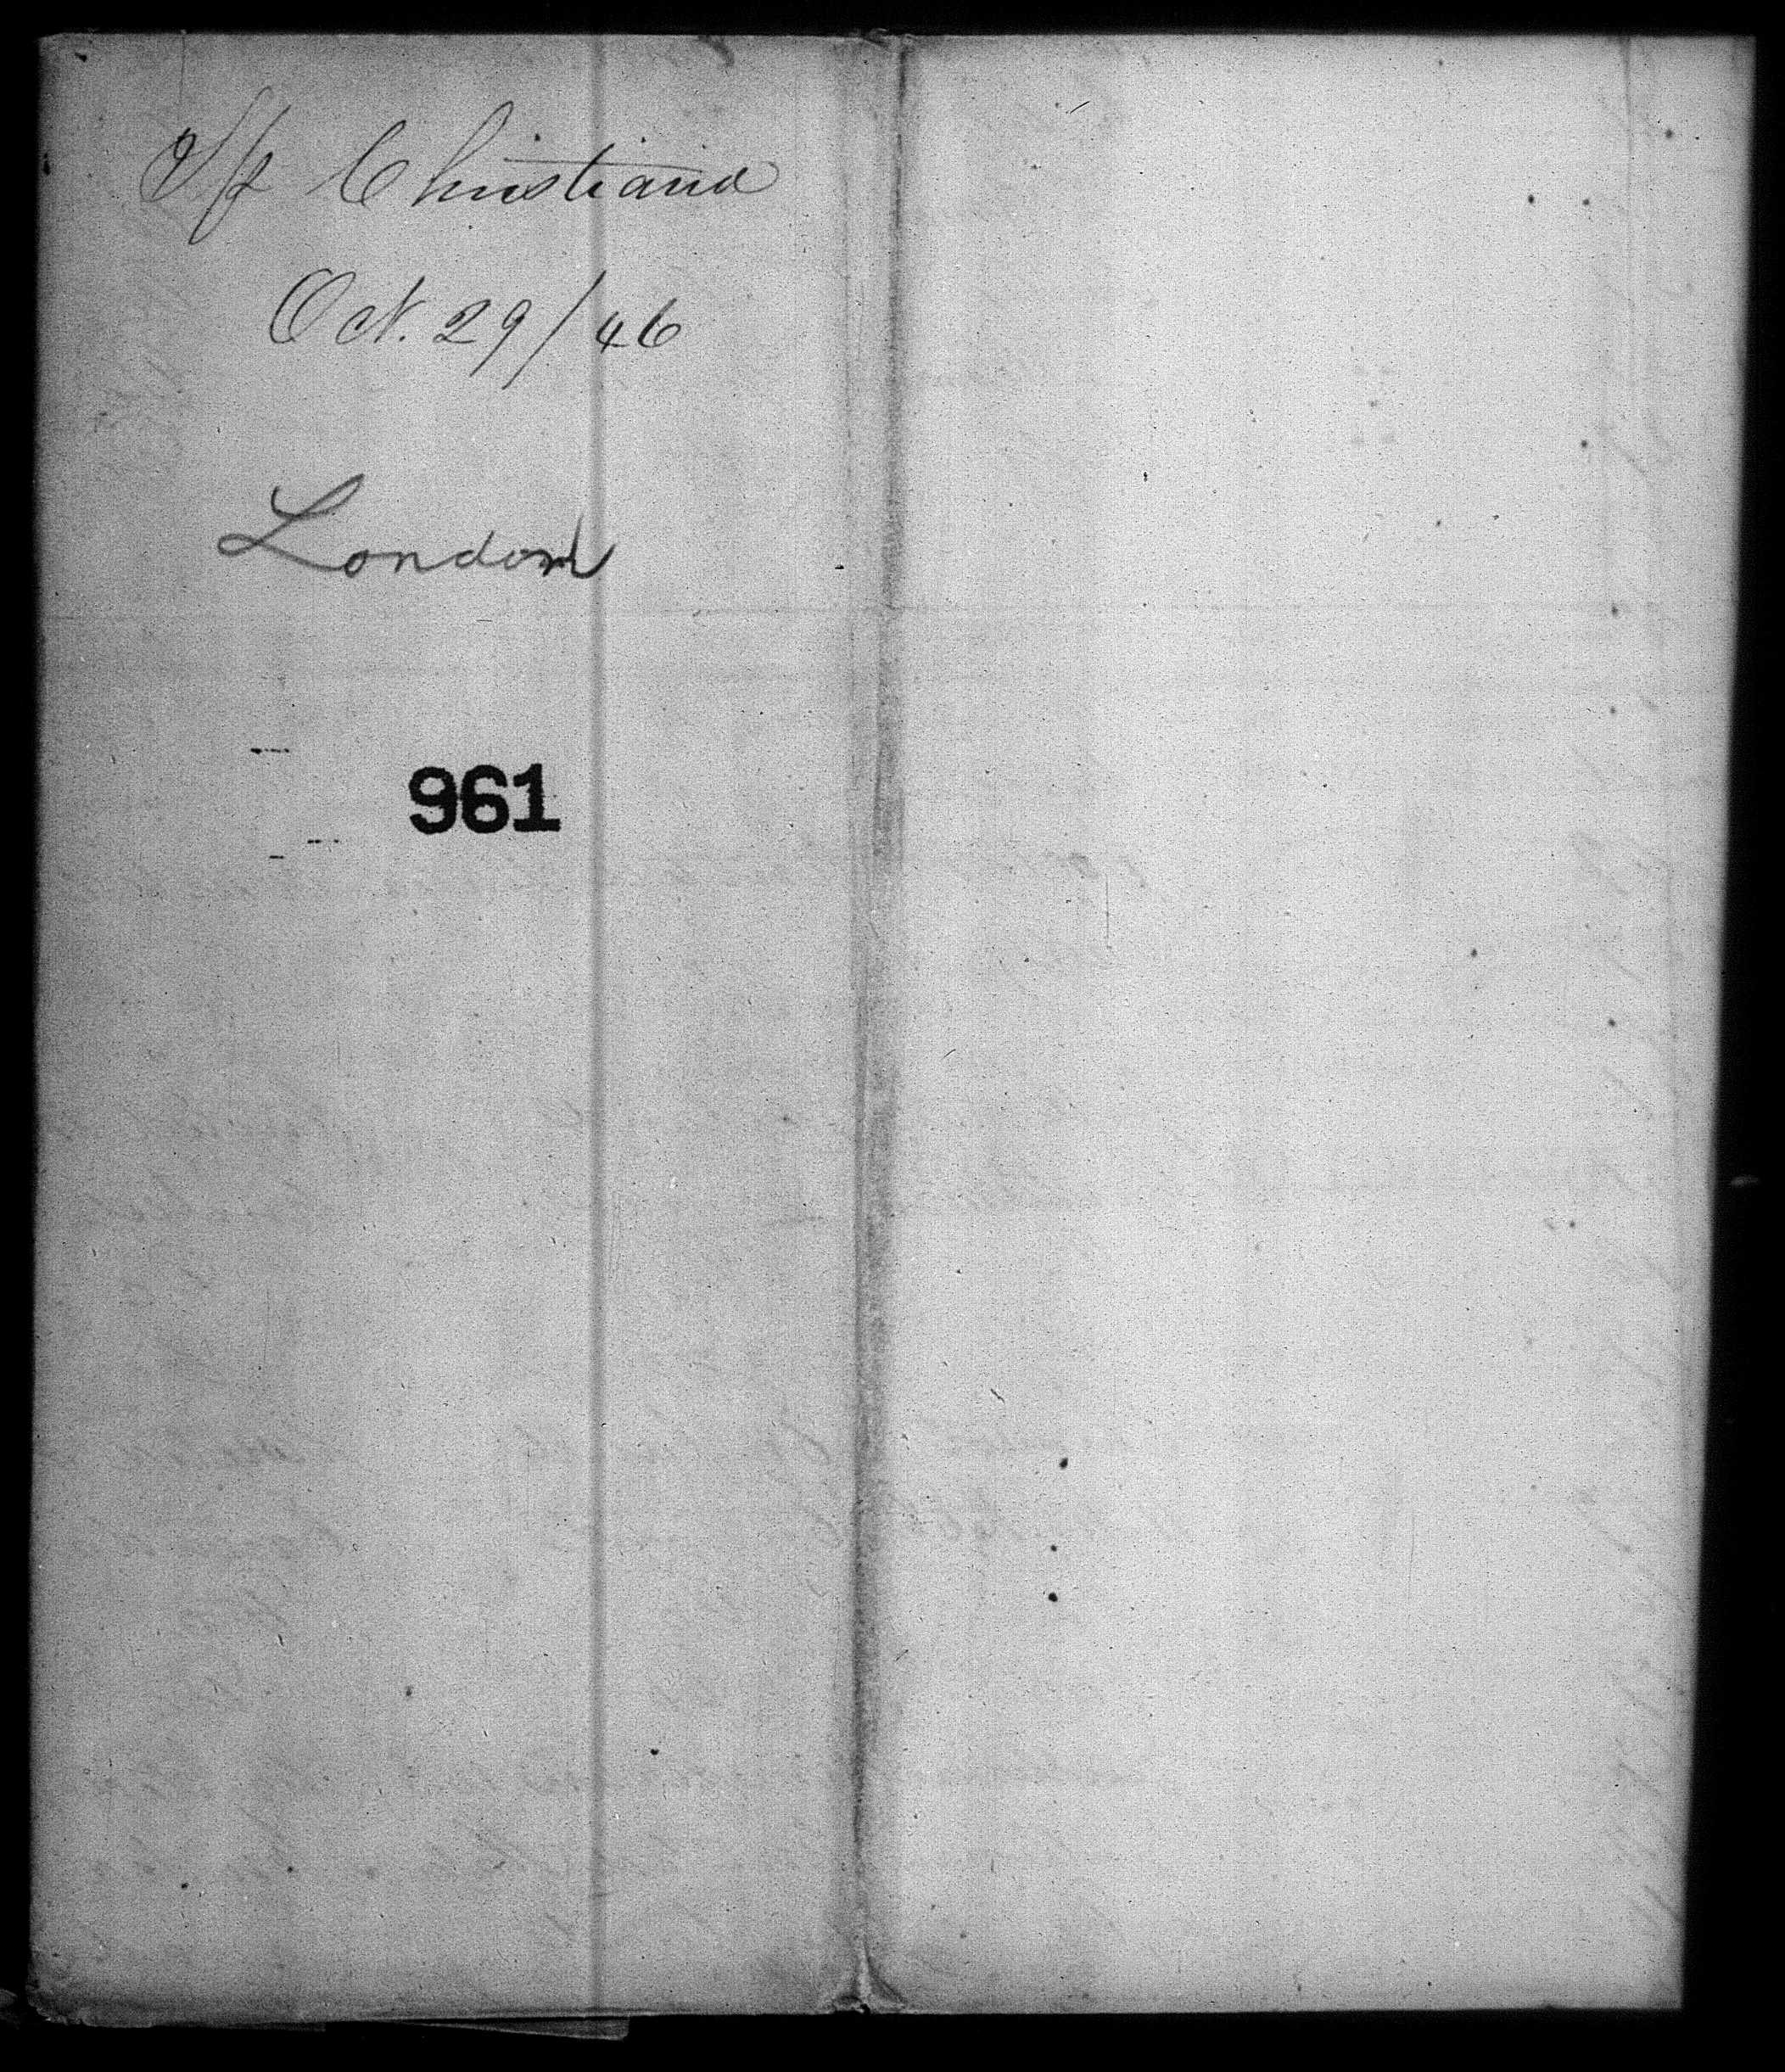 S/p Christiana
Oct. 29/46
London
961